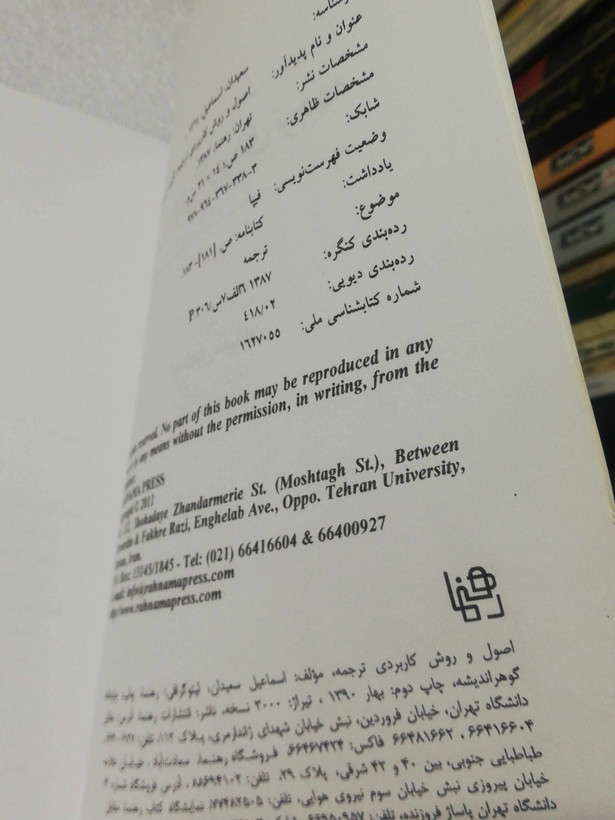 عنوان و نام پدیدآور:
سعیدان، اسماعیل
مشخصات نشر:
اصول و روش
مشخصات ظاهری:
تهران: رهنما، ۱۳۸۷
شابک:
۱۸۳ ص؛ ۱۴ × ۲۱ س‌م
۹۷۸-۹۶۴-۳۶۷-۳۳۸-۳
وضعیت فهرست‌نویسی: فیپا
یادداشت: کتابنامه: ص. [۱۸۱]-۱۸۳
موضوع: ترجمه
رده‌بندی کنگره: ۱۳۸۷ ۶الف۷س/P۳۰۶
رده‌بندی دیویی: ۴۱۸/۰۲
شماره کتابشناسی ملی: ۱۶۲۷۰۵۵
reserved. No part of this book may be reproduced in any
by any means without the permission, in writing, from the
PRESS
© 2011
Shohadaye Zhandarmerie St. (Moshtagh St.), Between
& Fakhre Razi, Enghelab Ave., Oppo. Tehran University,
Iran.
Box: 13145/1845 - Tel: (021) 66416604 & 66400927
info@rahnamapress.com
www.rahnamapress.com
رهنما
اصول و روش کاربردی ترجمه، مؤلف: اسماعیل سعیدان، لیتوگرافی: رهنما، چاپ:
گوهراندیشه، چاپ دوم: بهار ۱۳۹۰، تیراژ: ۳۰۰۰ نسخه، ناشر: انتشارات رهنما، آدرس:
دانشگاه تهران، خیابان فروردین، نبش خیابان شهدای ژاندارمری، پلاک ۱۱۲، تلفن:
۶۶۴۱۶۶۰۴، ۶۶۴۸۱۶۶۲ فاکس: ۶۶۴۶۷۴۲۴، فروشگاه رهنما، سعادت‌آباد، خیابان
طباطبایی جنوبی، بین ۴۰ و ۴۲ شرقی، پلاک ۲۹، تلفن: ۸۸۶۹۴۱۰۲، آدرس فروشگاه شماره ۴
خیابان پیروزی نبش خیابان سوم نیروی هوایی، تلفن: ۷۷۴۸۲۵۰۵، نمایشگاه کتاب رهنما،
دانشگاه تهران پاساژ فروزنده، تلفن: ۶۶۹۵۰۹۵۷